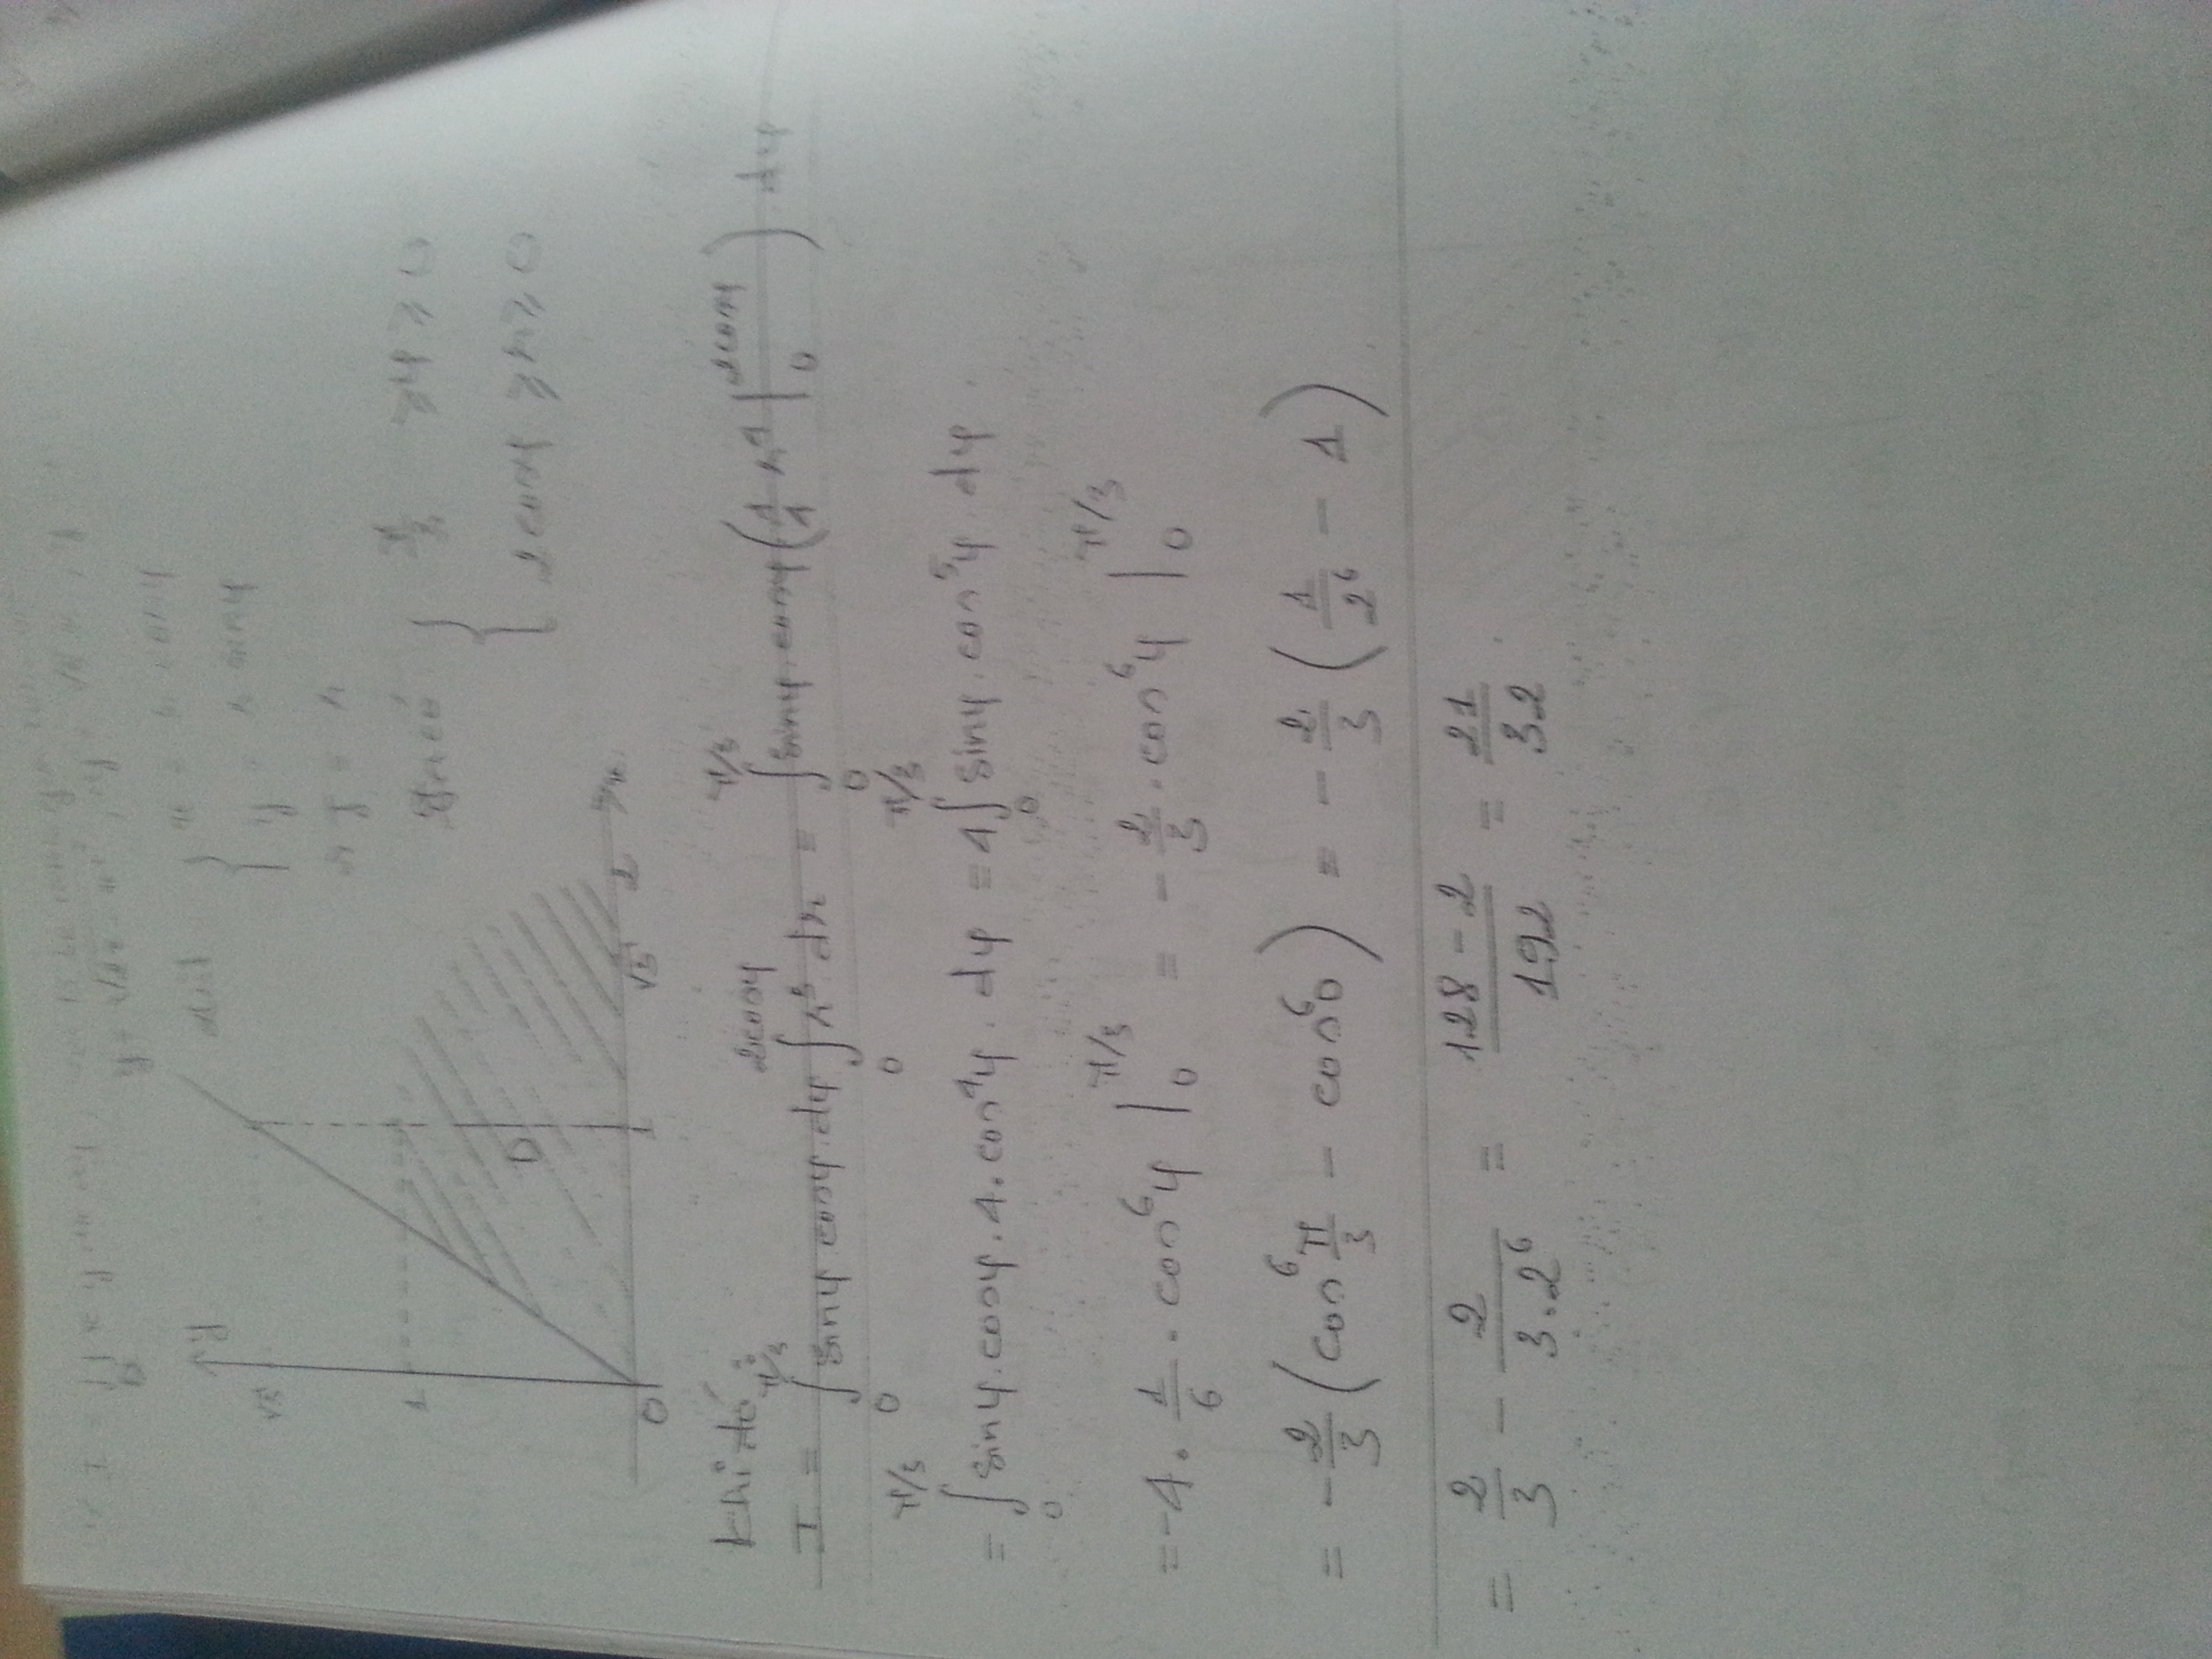 I = ∬ x y dx dy,
D
y = √(2x - x²), y = √3 x, y =
y
√3
1
D
O 1 √3 2 x
Đặt { x = r cosφ
y = r sinφ
→ J = r
Ta có { π/3 ≥ φ ≥ 0
2cosφ ≥ r ≥ 0
Khi đó:
I = ∫₀^{π/3} sinφ cosφ dφ ∫₀^{2cosφ} r³ dr = ∫₀^{π/3} sinφ cosφ (1/4 r⁴ |₀^{2cosφ}) dφ
= ∫₀^{π/3} sinφ.cosφ.4.cos⁴φ. dφ = 4∫₀^{π/3} sinφ.cos⁵φ. dφ.
= -4. 1/6 . cos⁶φ |₀^{π/3} = - 2/3 . cos⁶φ |₀^{π/3}
= - 2/3 (cos⁶ π/3 - cos⁶0) = - 2/3 (1/2⁶ - 1)
= 2/3 - 2/(3.2⁶) = (128 - 2)/192 = 21/32.